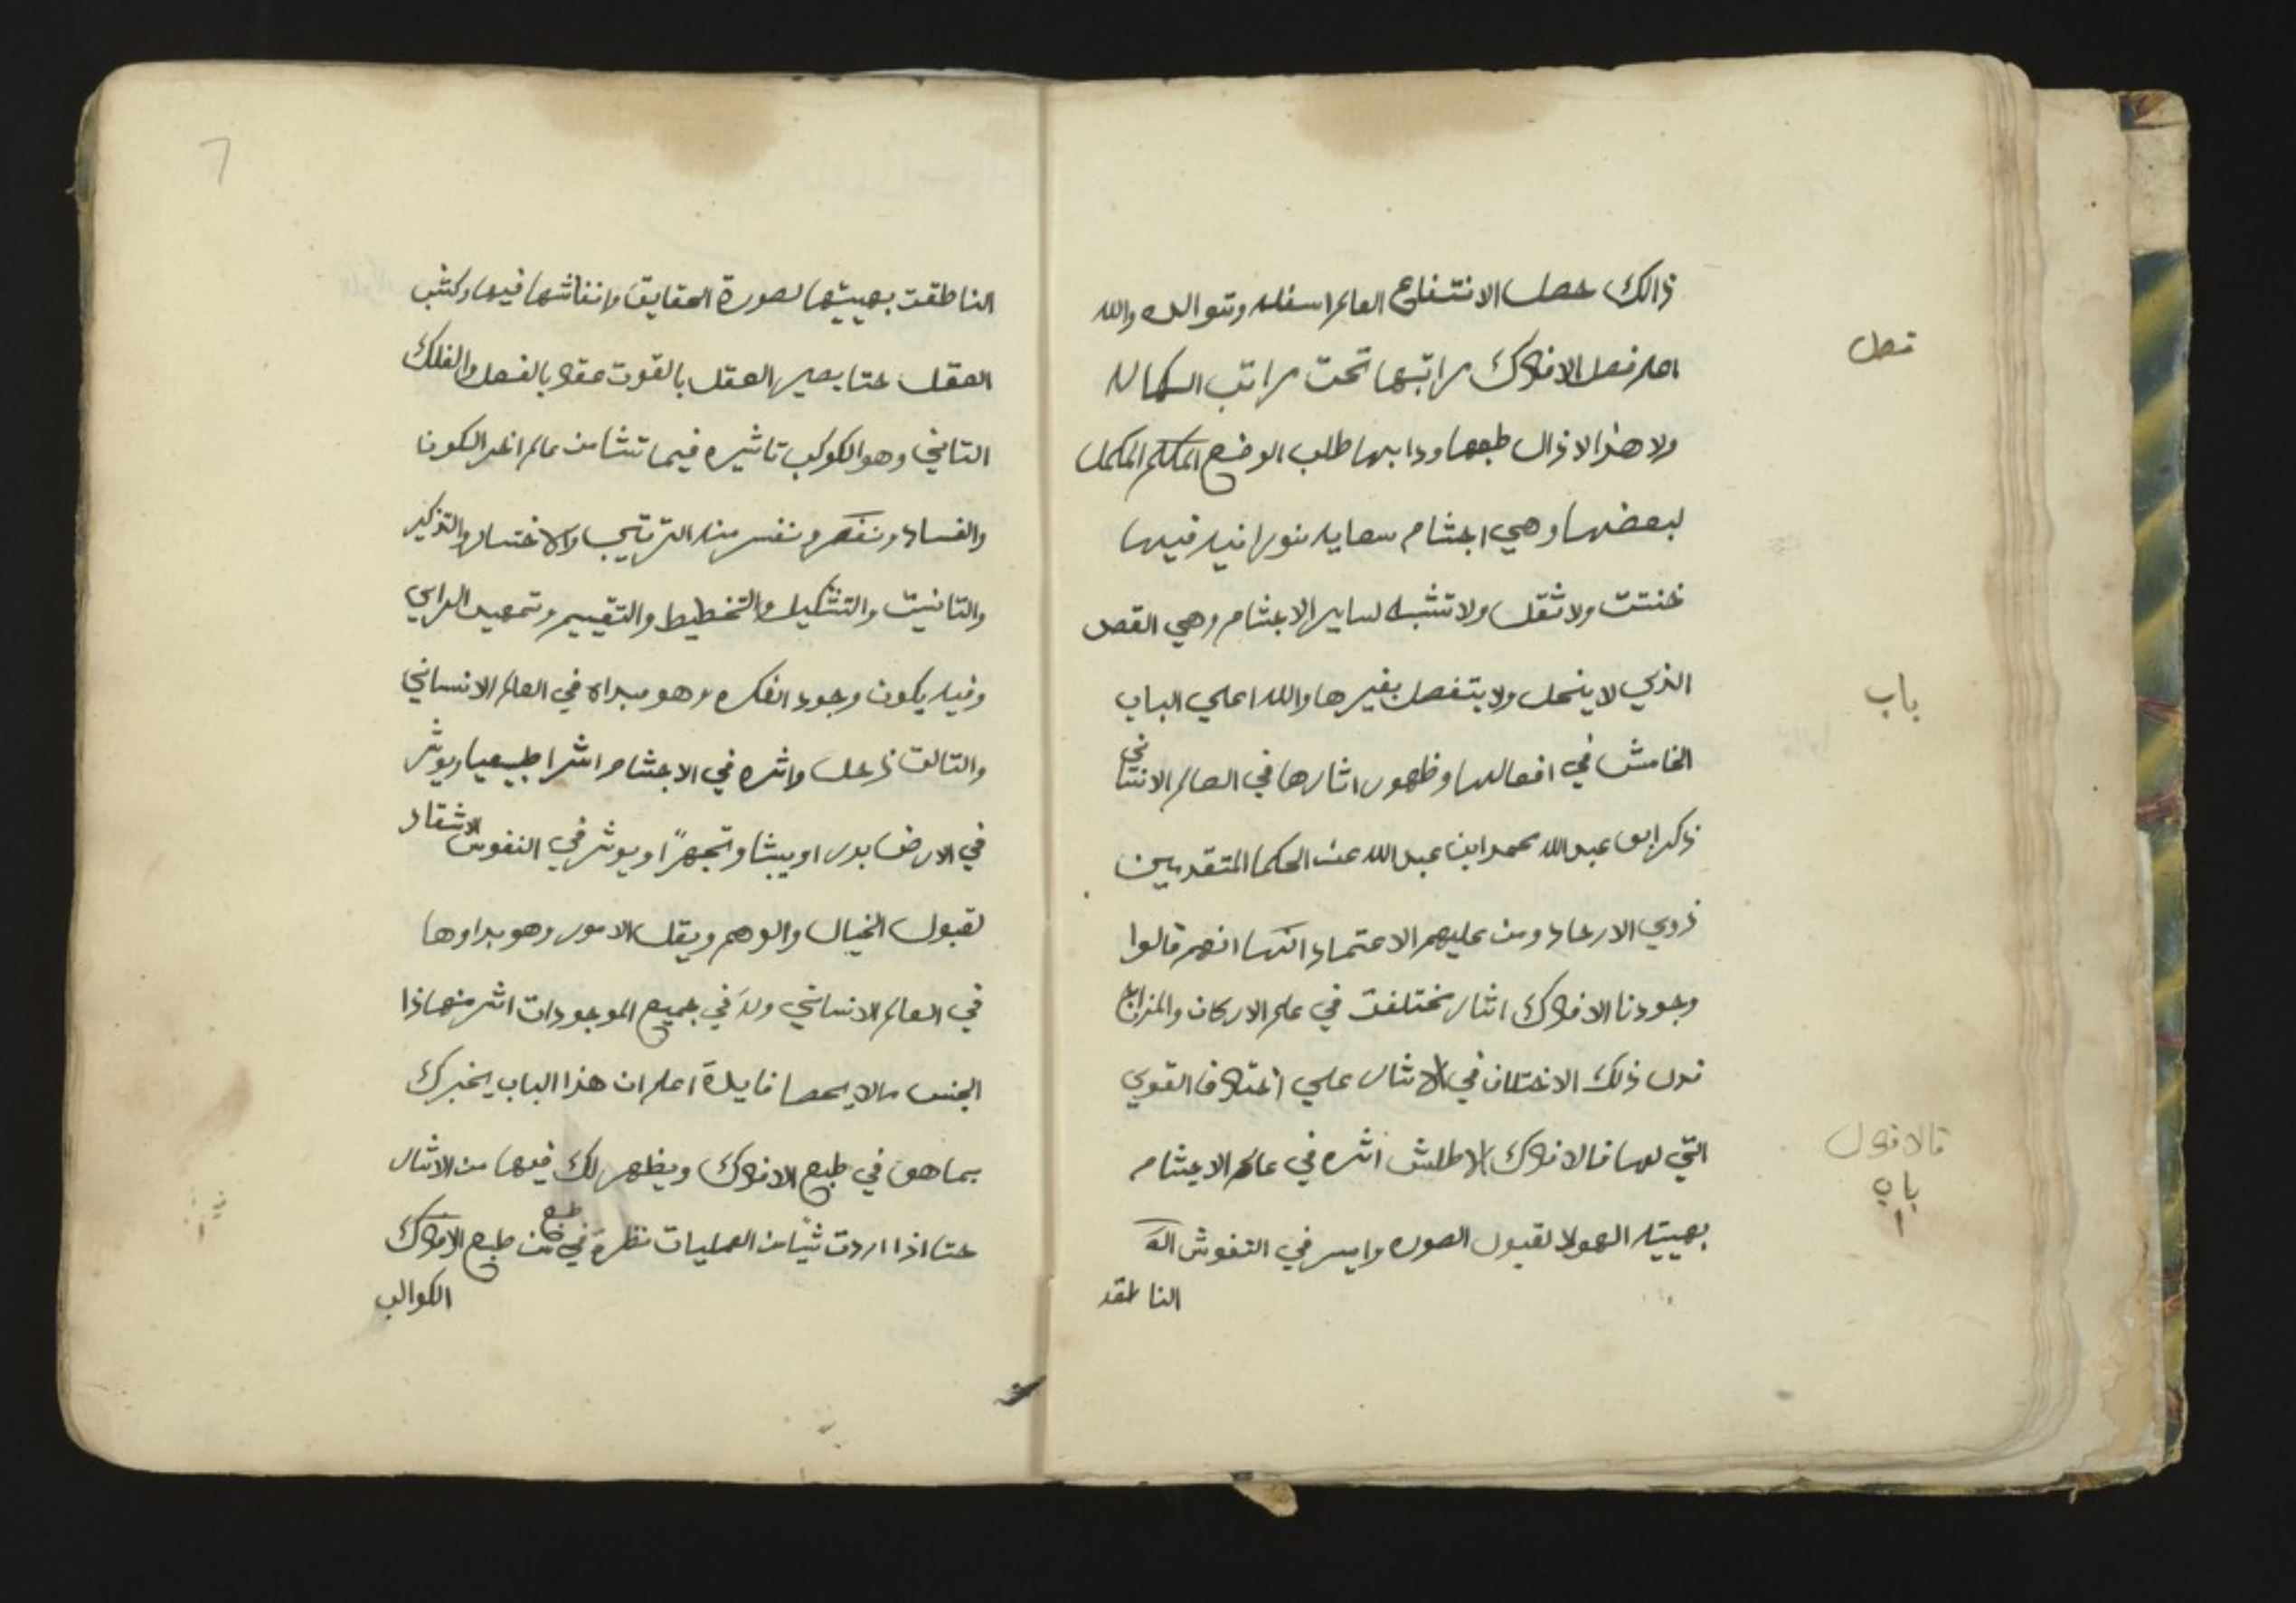 ذالك حصل الانتفاع العالم اسفله وتتوالده والله
اعلم فصل الافلاك مراتبها تحت مراتب الكماله
ولا هذا لا زال طبعها ودابها طلب الوضع المكلم المكمل
لبعضها وهي اجثام سمايه نورانيه فيها
خنتت ولا ثقل ولا تشبه لساير الاجثام وهي القص
الذي لا ينحل ولا يتفصل بغيرها والله اعلي الباب
الخامش في افعالها وظهور اثارها في العالم الانتاني
ذكر ابو عبد الله محمد ابن عبد الله عن الحكما المتقدمين
ذوي الارصاد ومن عليهم الاعتماد انهم قالوا
وجودنا الافلاك اثار مختلفت في علم الاركان والمزاج
فدل ذلك الاختلاف في الاثار علي اختلاف القوي
التي لها فالافلاك الاطلش اثره في عالم الاجثام
بهييته الهولا لقبول الصوره وايسر في النفوش
الناطقه
فصل
باب
فالافول
باب
الناطقت بهييتها لصورة الحقايق وانفاشها فيها وكثب
العقل حتا يصير العقل بالقوت عقلا بالفعل والفلك
التاني وهو الكوكب تاثيره فيما تنشا من عالم اخر الكون
والفساد ونفسر منه الترتيب والاختسار والتذكير
والتانيت والتشكيل والتخطيط والتقييم وتمهيد الراي
وفيه يكون وجود الفكره وهو مبداه في العالم الانساني
والتالت زحل واثره في الاجثام اشرا طبيعيا ويوثر
في الارض بدر او يبثا وتجهرا او يوثر في النفوش الاشقاد
لقبول الخيال والوهم ويقل الامور وهو بداوها
في العالم الانساني وله في جميع الموجودات اثر منها ذا
الجنس ما لا يحصا فايدة اعلم ان هذا الباب يخبرك
بما هو في طبع الافلاك ويظهر لك فيها من الاثار
حتا اذا اردت ثيا من العمليات نظرة في من طبع الافلاك
الكوالب